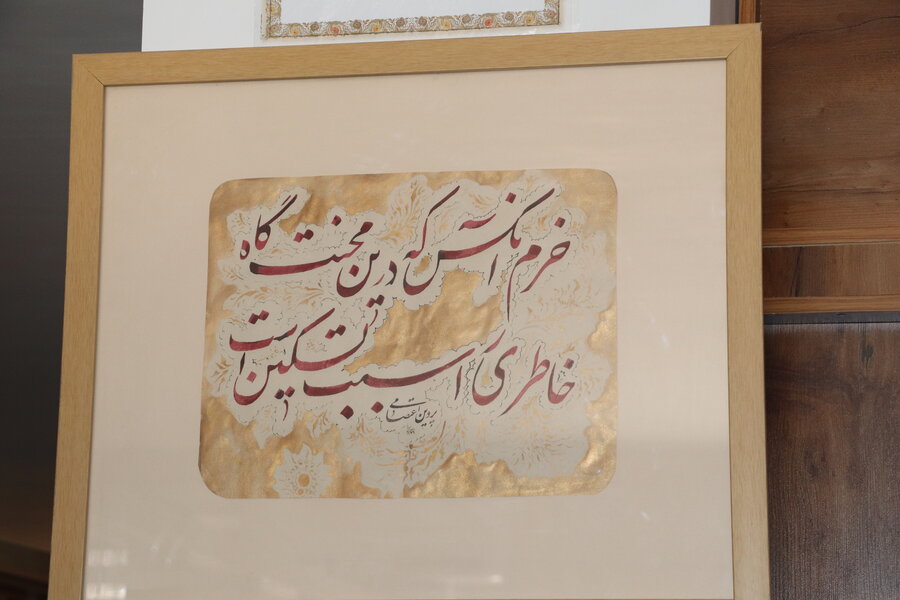 خرم آنکس که درین محنتگاه
خاطری را سبب تسکین است
پروین اعتصامی